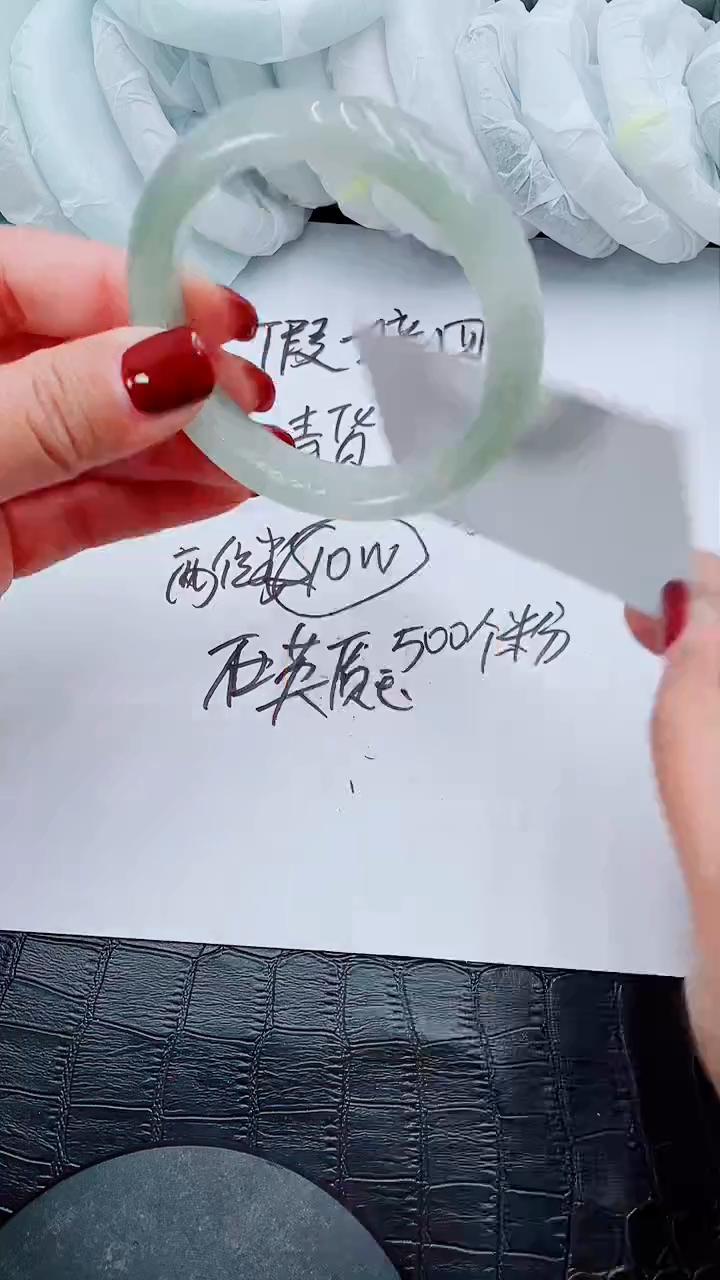 假一赔四
青货
两位数 10W
石英质 500个米分